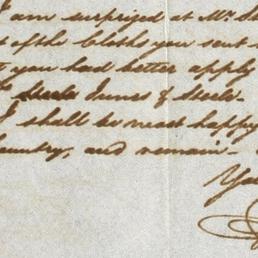 I am surprized at Mr. 
of the cloths you sent
you had better apply
Innes &
I shall be most happy
Country, and remain-
You